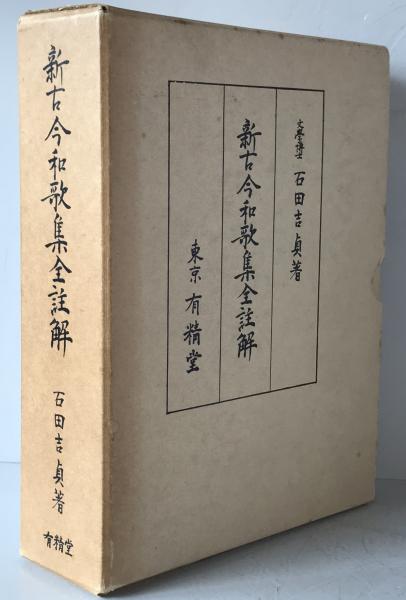 新古今和歌集全註解
石田吉貞著
有精堂
文學博士 石田吉貞著
新古今和歌集全註解
東京 有精堂